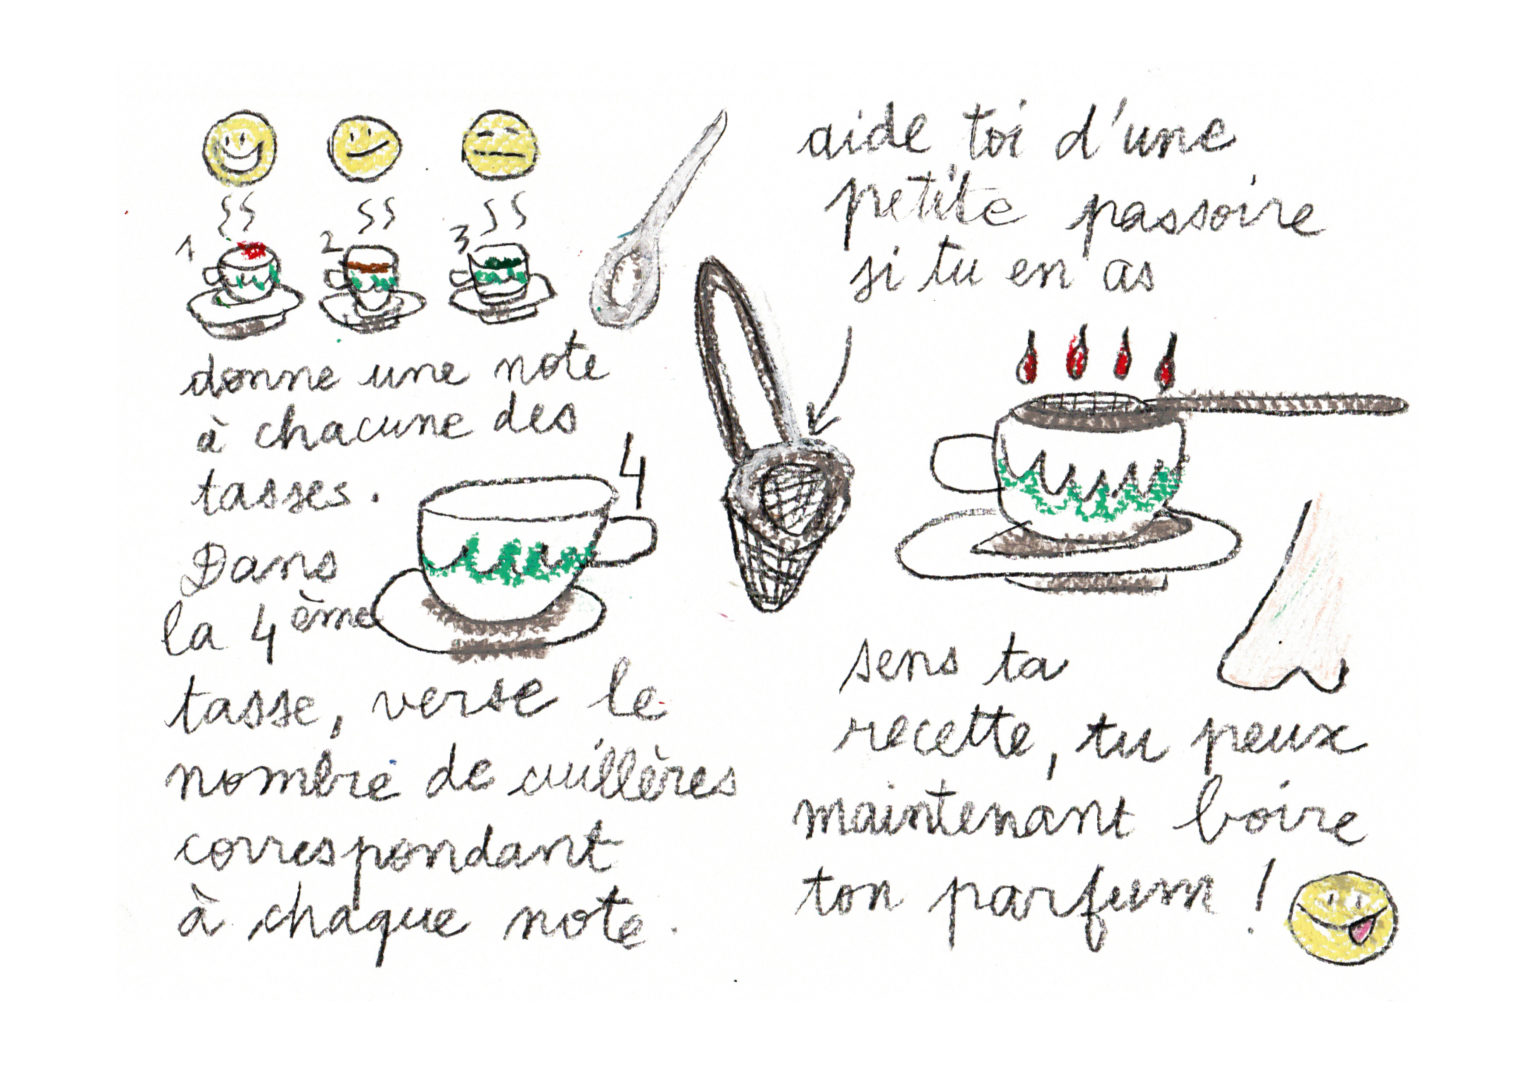 1 2 3
donne une note
à chacune des
tasses.
4
Dans
la 4ème
tasse, verse le
nombre de cuillères
correspondant
à chaque note.
aide toi d'une
petite passoire
si tu en as
sens ta
recette, tu peux
maintenant boire
ton parfum !